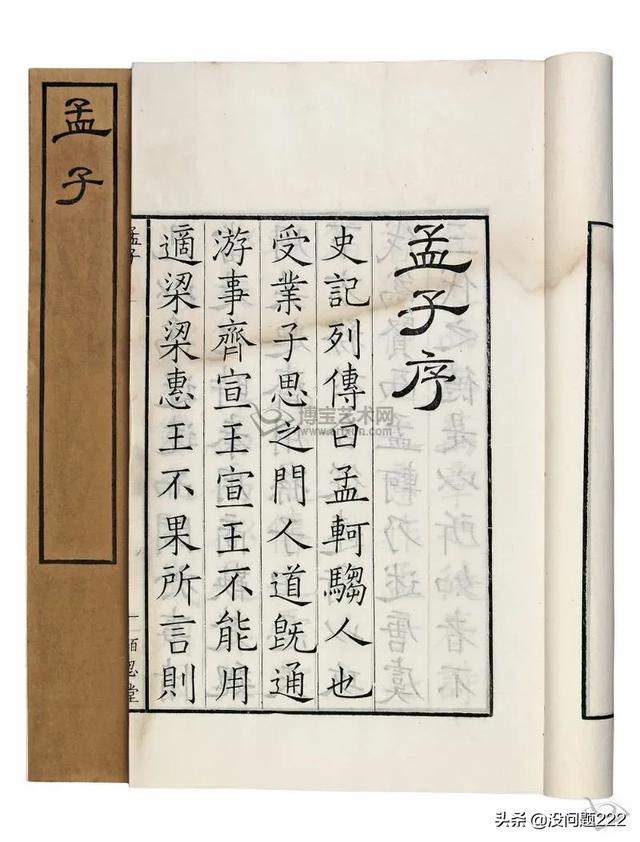 孟子
孟子序
史記列傳曰孟軻騶人也
受業子思之門人道既通
游事齊宣王宣王不能用
適梁梁惠王不果所言則
孟子
一
思堂
博宝艺术网
www.artxun.com
头条 @没问题222